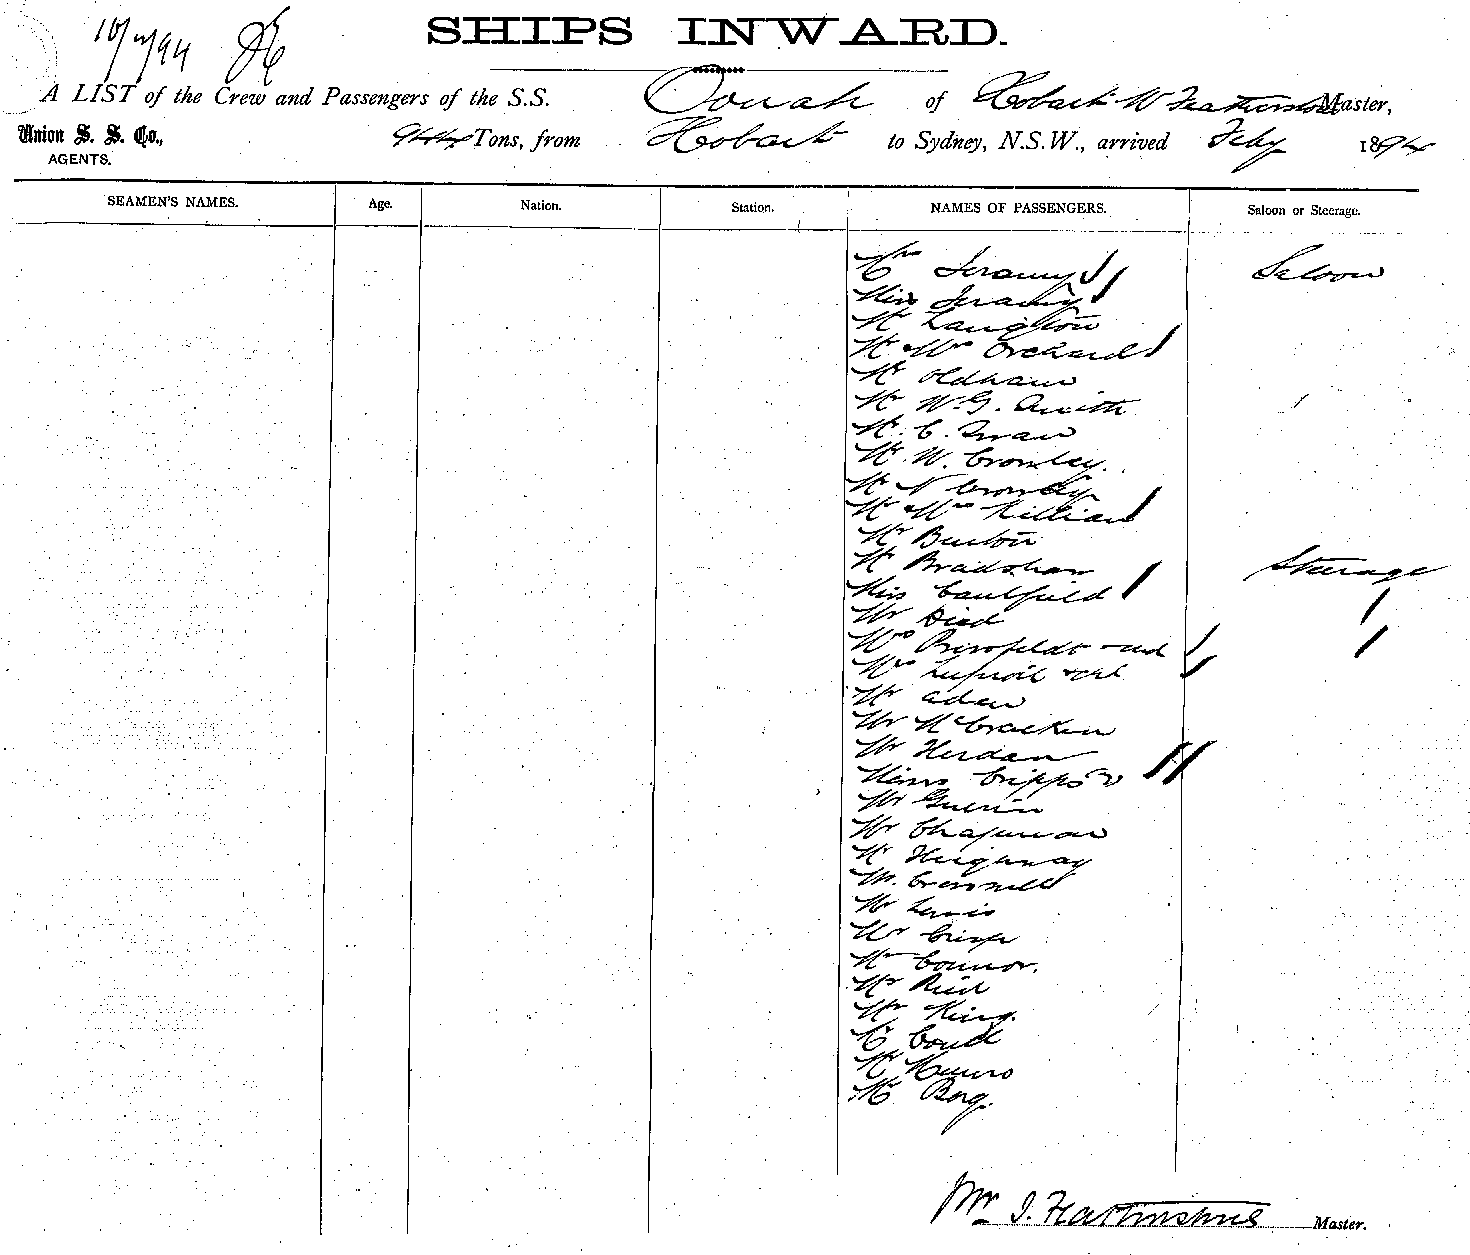 SHIPS INWARD.
A LIST of the Crew and Passengers of the S.S. Oonah of Hobart W Featherstone Master,
Union S. S. Co., 944 Tons, from Hobart to Sydney, N.S.W., arrived Feby 1894
AGENTS.
SEAMEN'S NAMES. Age. Nation. Station. NAMES OF PASSENGERS. Saloon or Steerage.
Mrs Saloon
Miss
Mr Langston
Mr & Mrs Orchard
Mr Oldham
Mr W. G. Smith
Mr C. Swan
Mr W. Crossley.
Mr N Crossley
Mr & Mrs Killian
Mr Burton
Mr Bradshaw Steerage
Miss Caulfield
Mr
Mrs
Mrs
Mr Aden
Mr McCracken
Mr Herdan
Misses Cripps 2
Mr Guerin
Mr Chapman
Mr Heighway
Mr
Mr Lewis
Mr Crisp
Mr Connor.
Mr Reid
Mr King.
Mr
Mr Munro
Mr Borg.
Wm J. Featherstone Master.